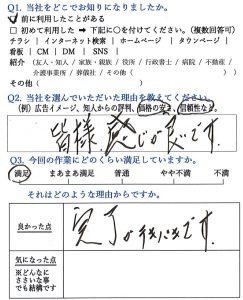 Q1. 当社をどこでお知りになりましたか。
☑ 前に利用したことがある
□ 初めて利用した ➔ 下記に○を付けてください。(複数回答可)
チラシ | インターネット検索 | ホームページ | タウンページ |
看板 | CM | DM | SNS |
紹介 (友人・知人 / 家族・親族 / 役所 / 行政書士 / 病院 / 不動産 /
介護事業所 / 葬儀社 / その他( ))
その他( )
Q2. 当社を選んでいただいた理由を教えてください。
(例) 広告イメージ、知人からの評判、価格の安さ、信頼性など。
皆様、感じが良いです。
Q3. 今回の作業にどのくらい満足していますか。
満足 まあまあ満足 普通 やや不満 不満
それはどのような理由からですか。
良かった点
完了が
です。
気になった点
※どんなに
ささいな事
でも可